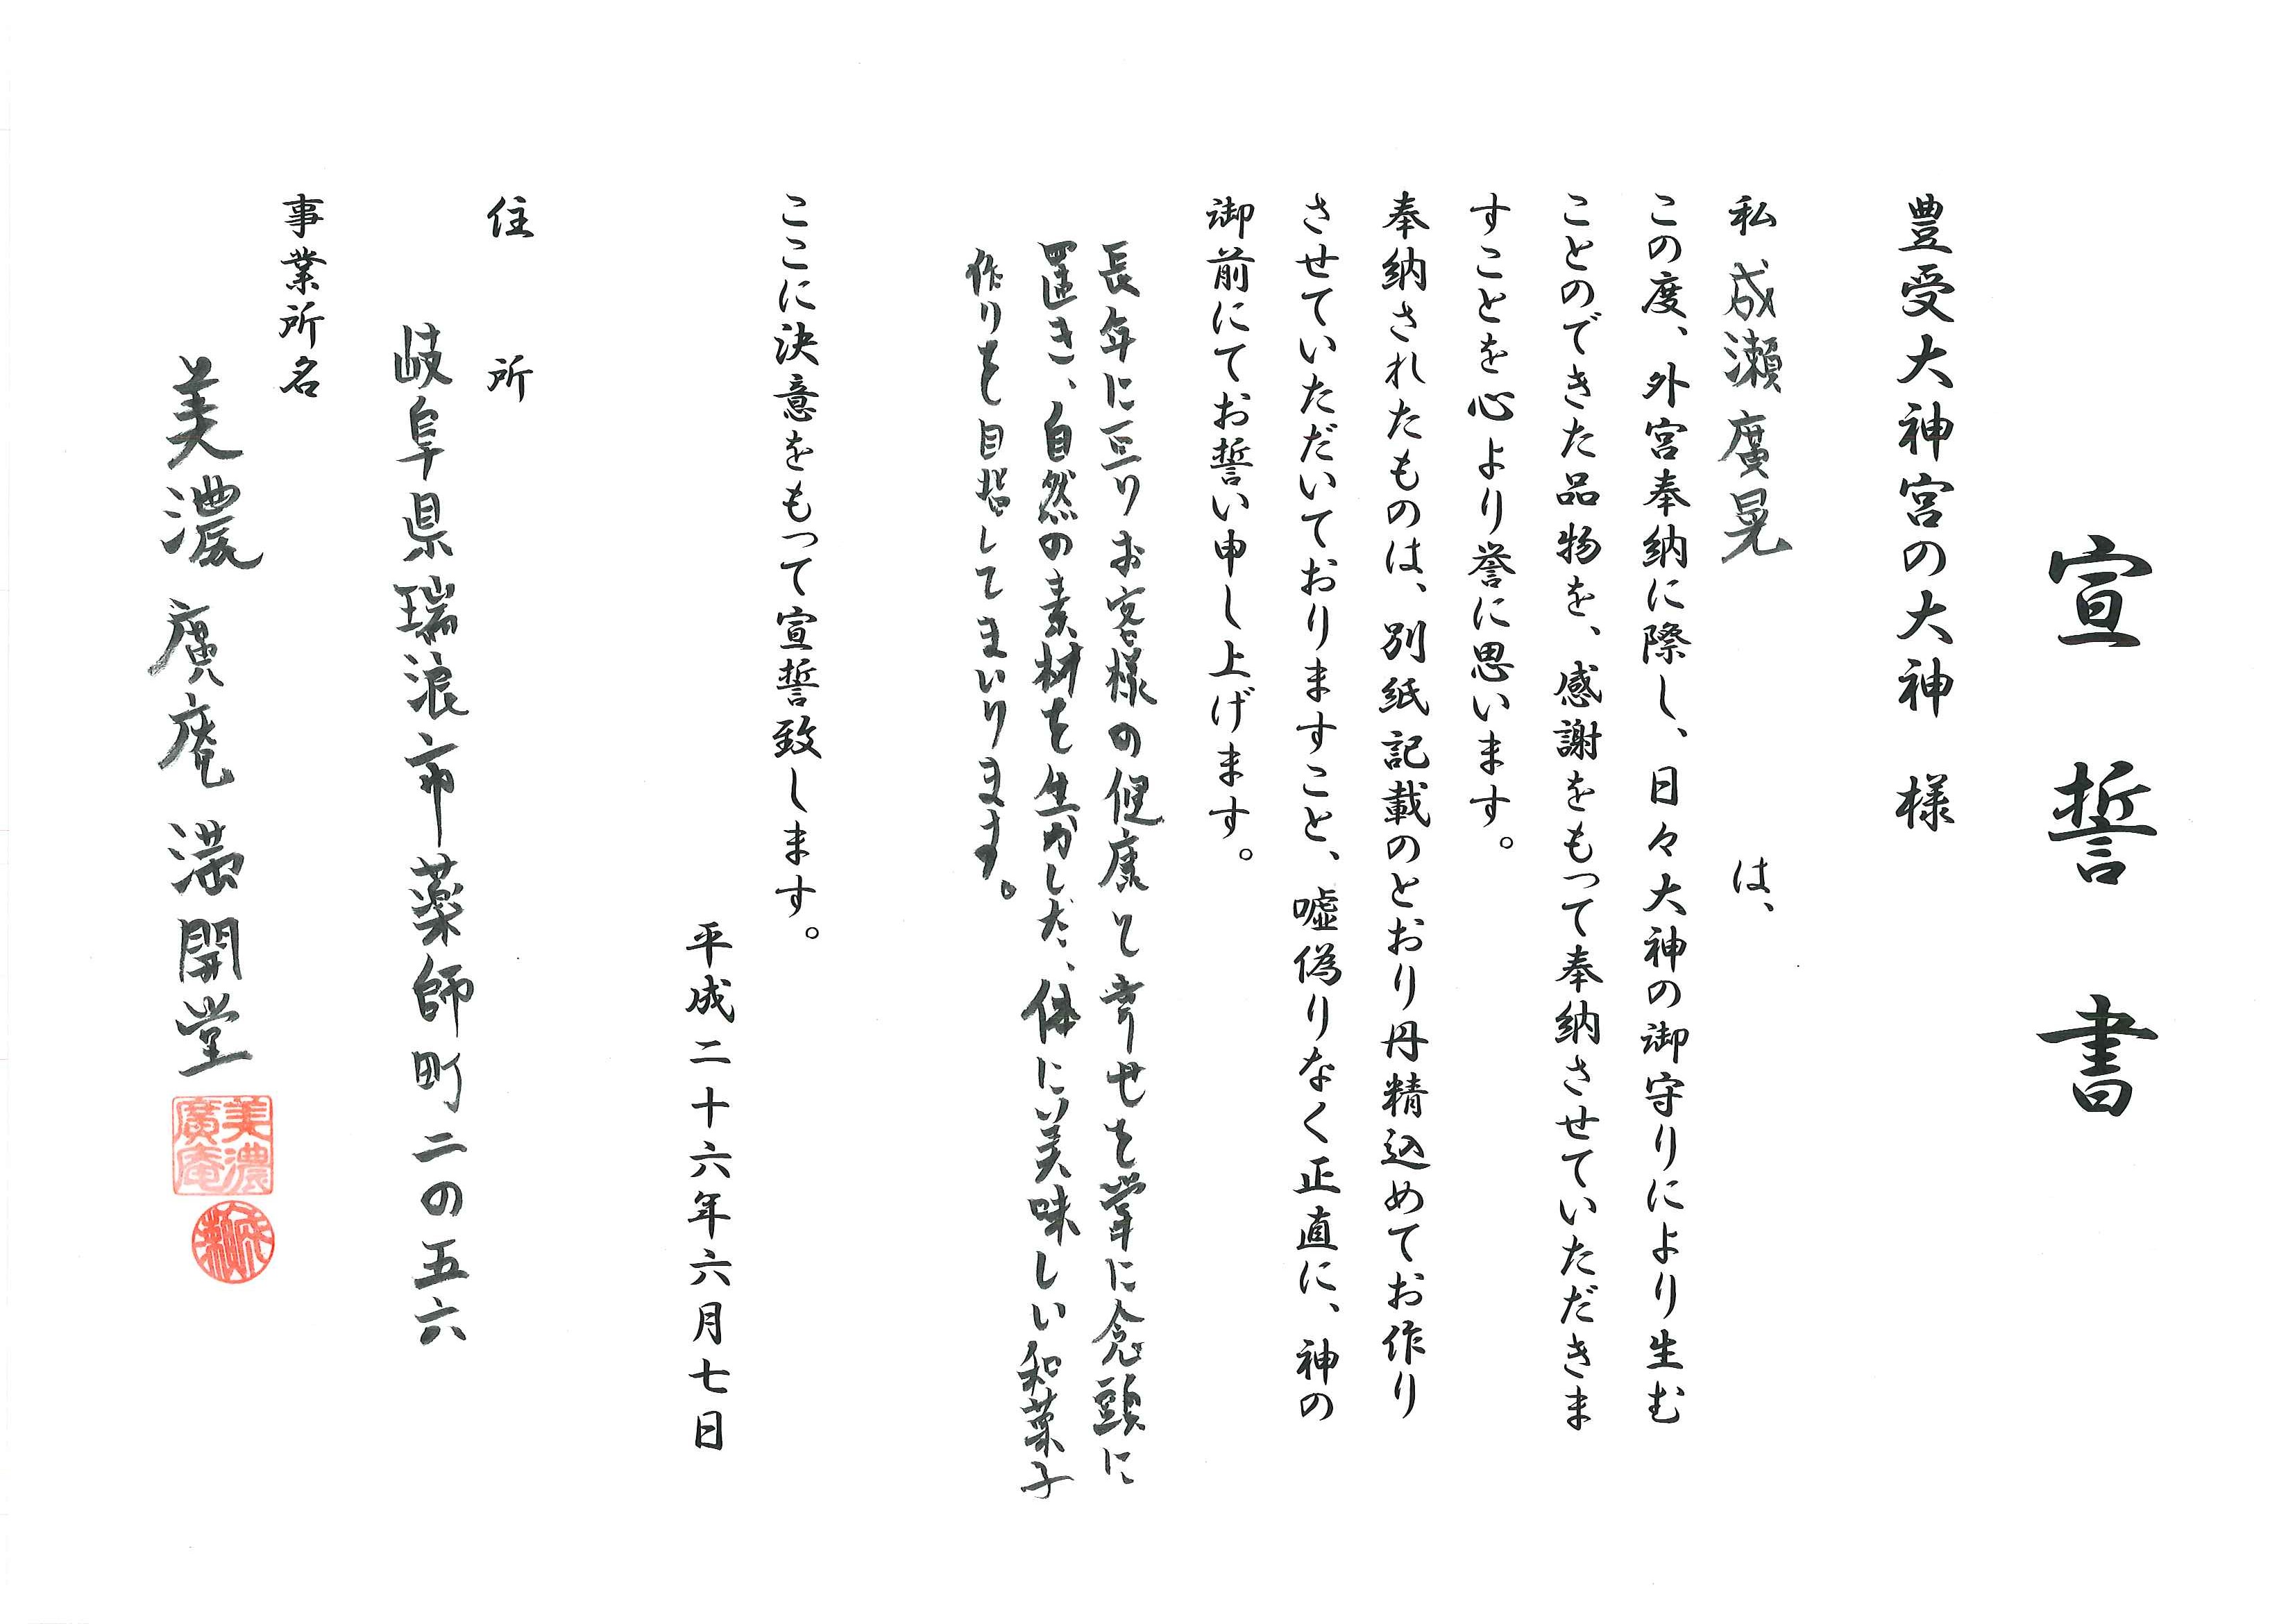 宣誓書
豊受大神宮の大神　様
私　成瀬廣晃　は、
この度、外宮奉納に際し、日々大神の御守りにより生む
ことのできた品物を、感謝をもって奉納させていただきま
すことを心より誉に思います。
奉納されたものは、別紙記載のとおり丹精込めてお作り
させていただいておりますこと、嘘偽りなく正直に、神の
御前にてお誓い申し上げます。
長年に亘りお客様の健康と幸せを常に念頭に
置き、自然の素材を生かした、体に美味しい和菓子
作りを目指してまいります。
ここに決意をもって宣誓致します。
平成二十六年六月七日
住　所
岐阜県瑞浪市薬師町二の五六
事業所名
美濃廣庵 満開堂
美濃
廣庵
成瀬